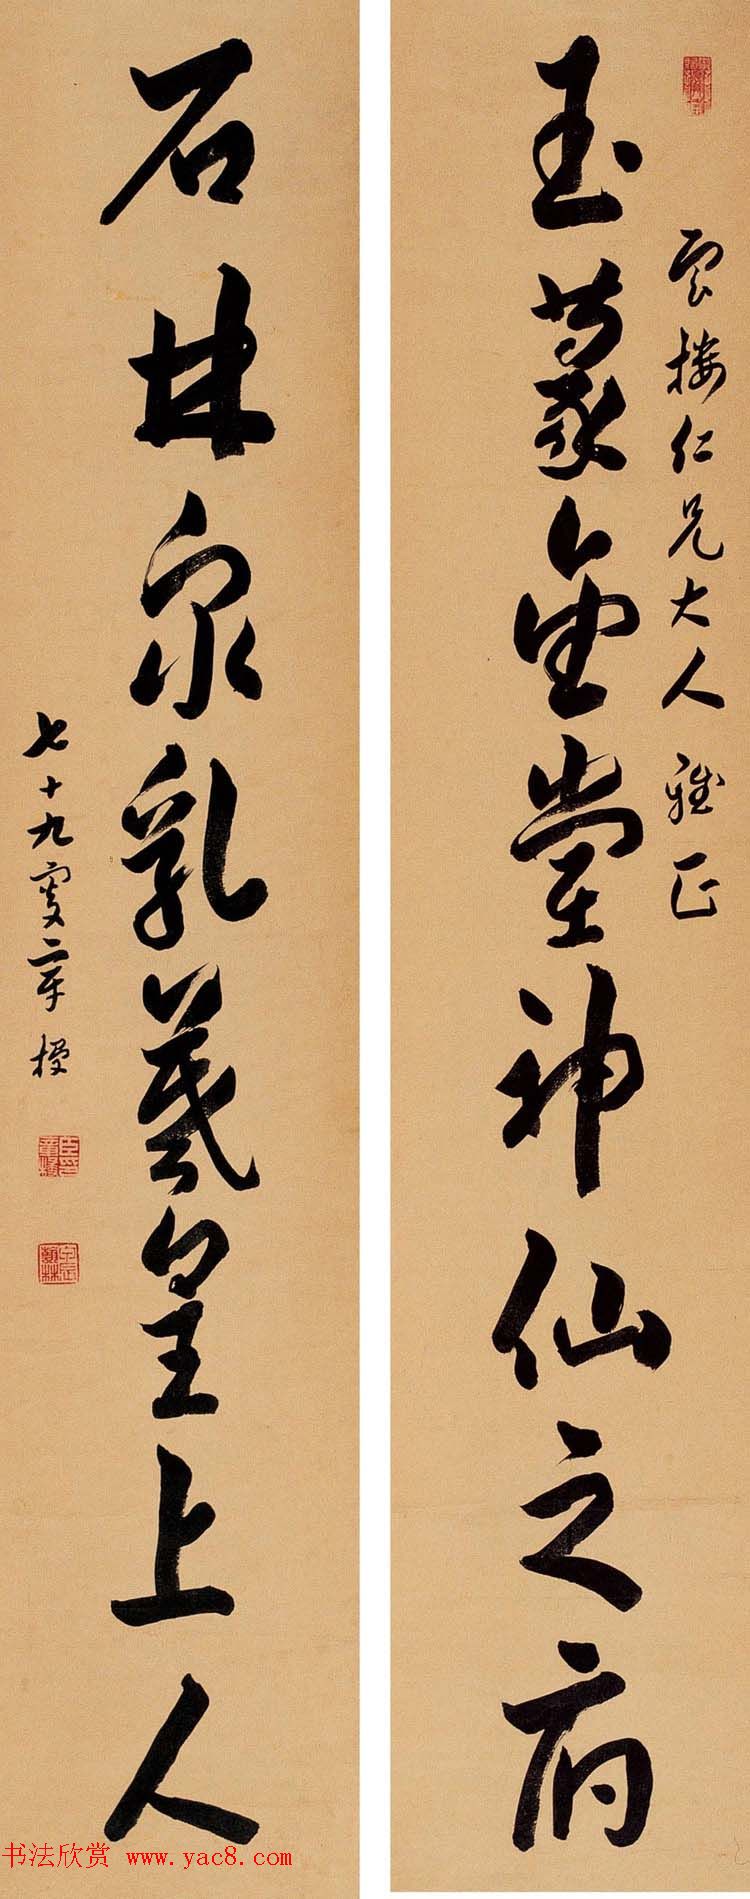 雲樓仁兄大人雅正
玉篆金堂神仙之府
石林泉乳羲皇上人
七十九叟童槐
书法欣赏 www.yac8.com